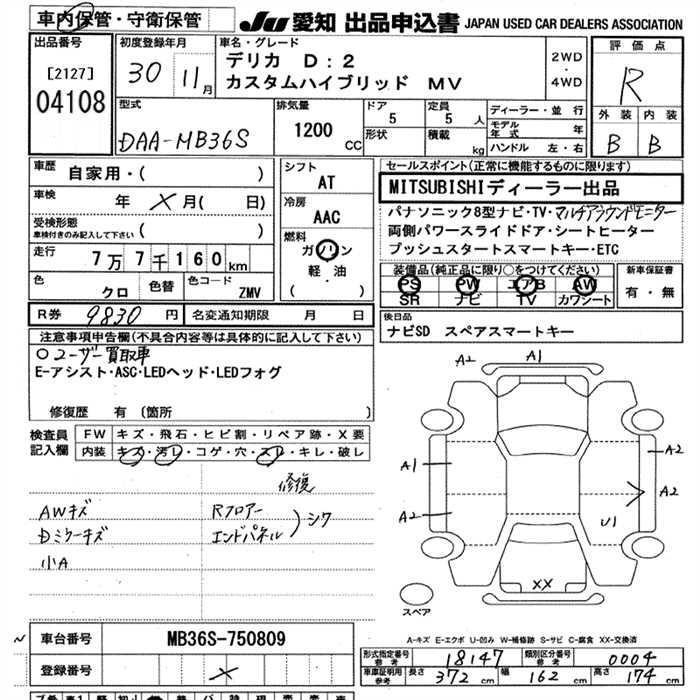 車内保管・守衛保管
JU 愛知 出品申込書 JAPAN USED CAR DEALERS ASSOCIATION
出品番号
[2127]
04108
初度登録年月
30 11月
車名・グレード
デリカ D:2
カスタムハイブリッド MV
2WD
・
4WD
評価点
R
外装 内装
B B
型式
DAA-MB36S
排気量
1200 CC
ドア
5
形状
定員
5 人
積載
kg
ディーラー・並行
モデル年式 年
ハンドル 左・右
車歴
自家用・( )
車検
年 X月( 日)
受検形態
車検付きのみ記入して下さい
( )
走行
7万7千160km
色
クロ
色替
色コード
ZMV
シフト
AT
冷房
AAC
燃料
ガソリン
・
軽油
( )
セールスポイント(正常に機能するものに限ります)
MITSUBISHIディーラー出品
パナソニック8型ナビ・TV・マルチアラウンドモニター
両側パワースライドドア・シートヒーター
プッシュスタートスマートキー・ETC
装備品(純正品に限り○をつけてください)
PS PW エアB AW
SR ナビ TV カワシート
新車保証書
有・無
R券 9830円
名変通知期限 月 日
後日品
ナビSD スペアスマートキー
注意事項申告欄(不具合内容等は具体的に記入して下さい)
○ユーザー買取車
E-アシスト・ASC・LEDヘッド・LEDフォグ
修復歴 有 (箇所 )
検査員
記入欄
FW キズ・飛石・ヒビ割・リペア跡・X要
内装 キズ・汚レ・コゲ・穴・スレ・キレ・破レ
修復
AWキズ
Dミラーキズ
小A
Rフロアー
エンドパネル
)シワ
A2 A1
A1 A2
A2 A2
U1
XX
スペア
A-キズ E-エクボ U-凹み W-補修跡 S-サビ C-腐食 XX-交換済
車台番号 MB36S-750809
登録番号 X
形式指定番号
参考
18147
類別区分番号
参考
0004
車庫証明用
参考
長さ 372 cm
幅 162 cm
高さ 174 cm